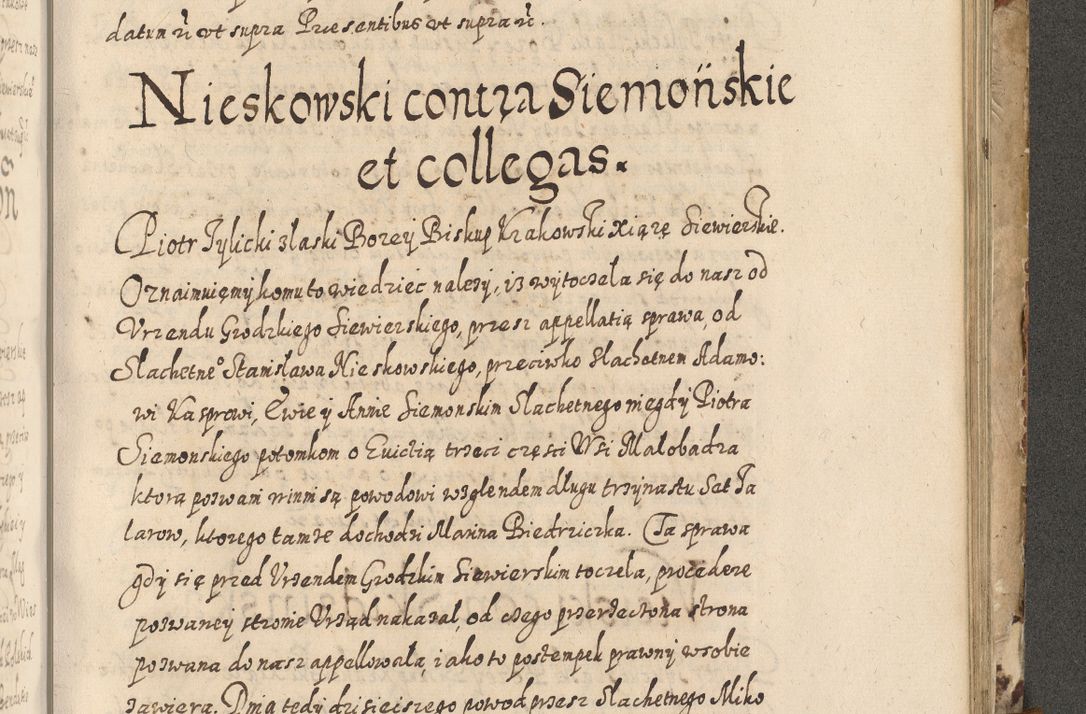 datum etc ut supra Præsentibus ut supra etc.
Nieskowski contra Siemońskie
et collegas.
Piotr Tylicki z łaski Bozey Biskup Krakowski Xiąze Siewierskie.
Oznaimuięmy komu to wiedziec nalezy, iz wytoczela się do nasz od
Urzendu Grodzkiego Siewierskiego, przesz appellatią sprawa, od
Slachetne° Stanisława Nieskowskiego, przeciwko Slachetnem Adamo:
wi Kasprowi, Ewie y Annie Siemonskim Slachetnego niegdy Piotra
Siemonskiego potomkom o Evictią trzeci częsci Wsi Małobadza
ktorą pozwani winni są powodowi wzglendem dlugu trzynastu Set Ta
larow, ktorego tamze dochodzi Marina Biedrziczka. Ta sprawa
gdy się przed Urzendem Grodzkim Siewierskim toczela, procedere
pozwaney stronie Urząd nakazal, od czego przerzeczona strona
pozwana do nasz appellowała iako to postempek prawny w sobie
zawiera. Dnia tedy dzisieiszego powod przesz Slachetnego Miko